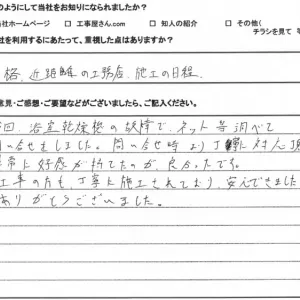 のようにして当社をお知りになられましたか？
当社ホームページ □ 工事屋さん.com □ 知人の紹介 □ その他（
チラシを見て 等
社を利用するにあたって、重視した点はありますか？
格、近距離の工務店、施工の日程、
意見・ご感想・ご要望などがございましたら、ご記入ください。
回、浴室乾燥機の故障で、ネット等調べて
問い合せをしました。問い合せ時より丁寧に対人頂
非常に好感が持てたのが、良かったです。
工事の方も、丁寧に施工されており、安心できました
ありがとうございました。